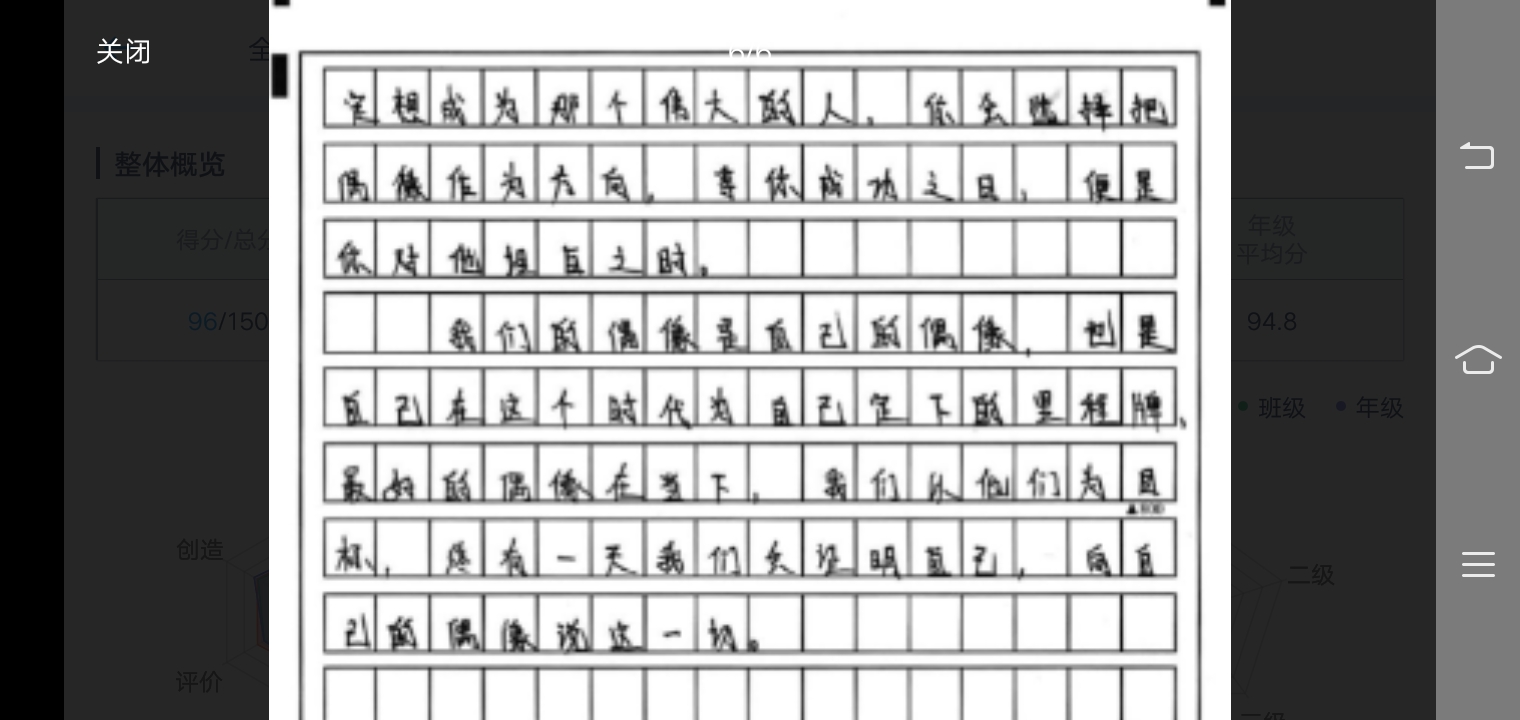 关闭
全
6/6
整体概览
得分/总分
年级
平均分
96/150
94.8
班级
年级
创造
评价
二级
定想成为那个伟大的人，你会选择把
偶像作为方向，等你成功之日，便是
你对他坦言之时。
我们的偶像是自己的偶像，也是
自己在这个时代为自己定下的里程牌，
最好的偶像在当下，我们以他们为目
▲800
标，终有一天我们会证明自己，向自
己的偶像说这一切。